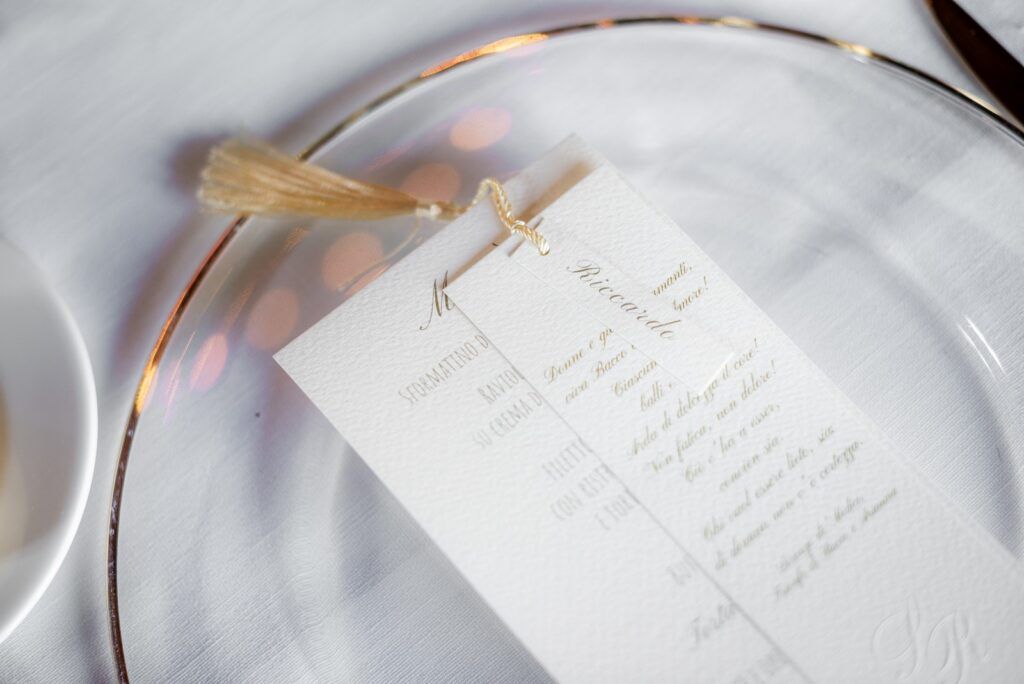 M
SFORMATINO D
RAVIO
SU CREMA D
FILETTO
CON RISE
E TOR
Torta
Riccardo
manti,
more!
Donne e gio
viva Bacco
Ciascun
balli e
Arda di dolcezza il core!
Non fatica, non dolore!
Ciò c'ha a esser,
convien sia.
Chi vuol esser lieto, sia:
di doman non c'è certezza.
Lorenzo de' Medici,
Trionfo di Bacco e Arianna
SR